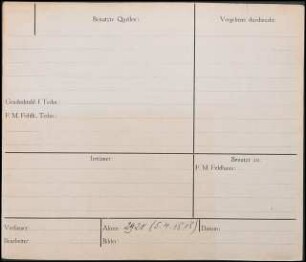 Benutzte Quellen:
Vorgelesen durchmacht:
Geschichtsbl. f. Techn.:
F. M. Feldh., Techn.:
Irrtümer:
Benutzt in:
F. M. Feldhaus:
Verfasser:
Akten: 2928 (5. 4. 1515)
Datum:
Bearbeiter:
Bilder: